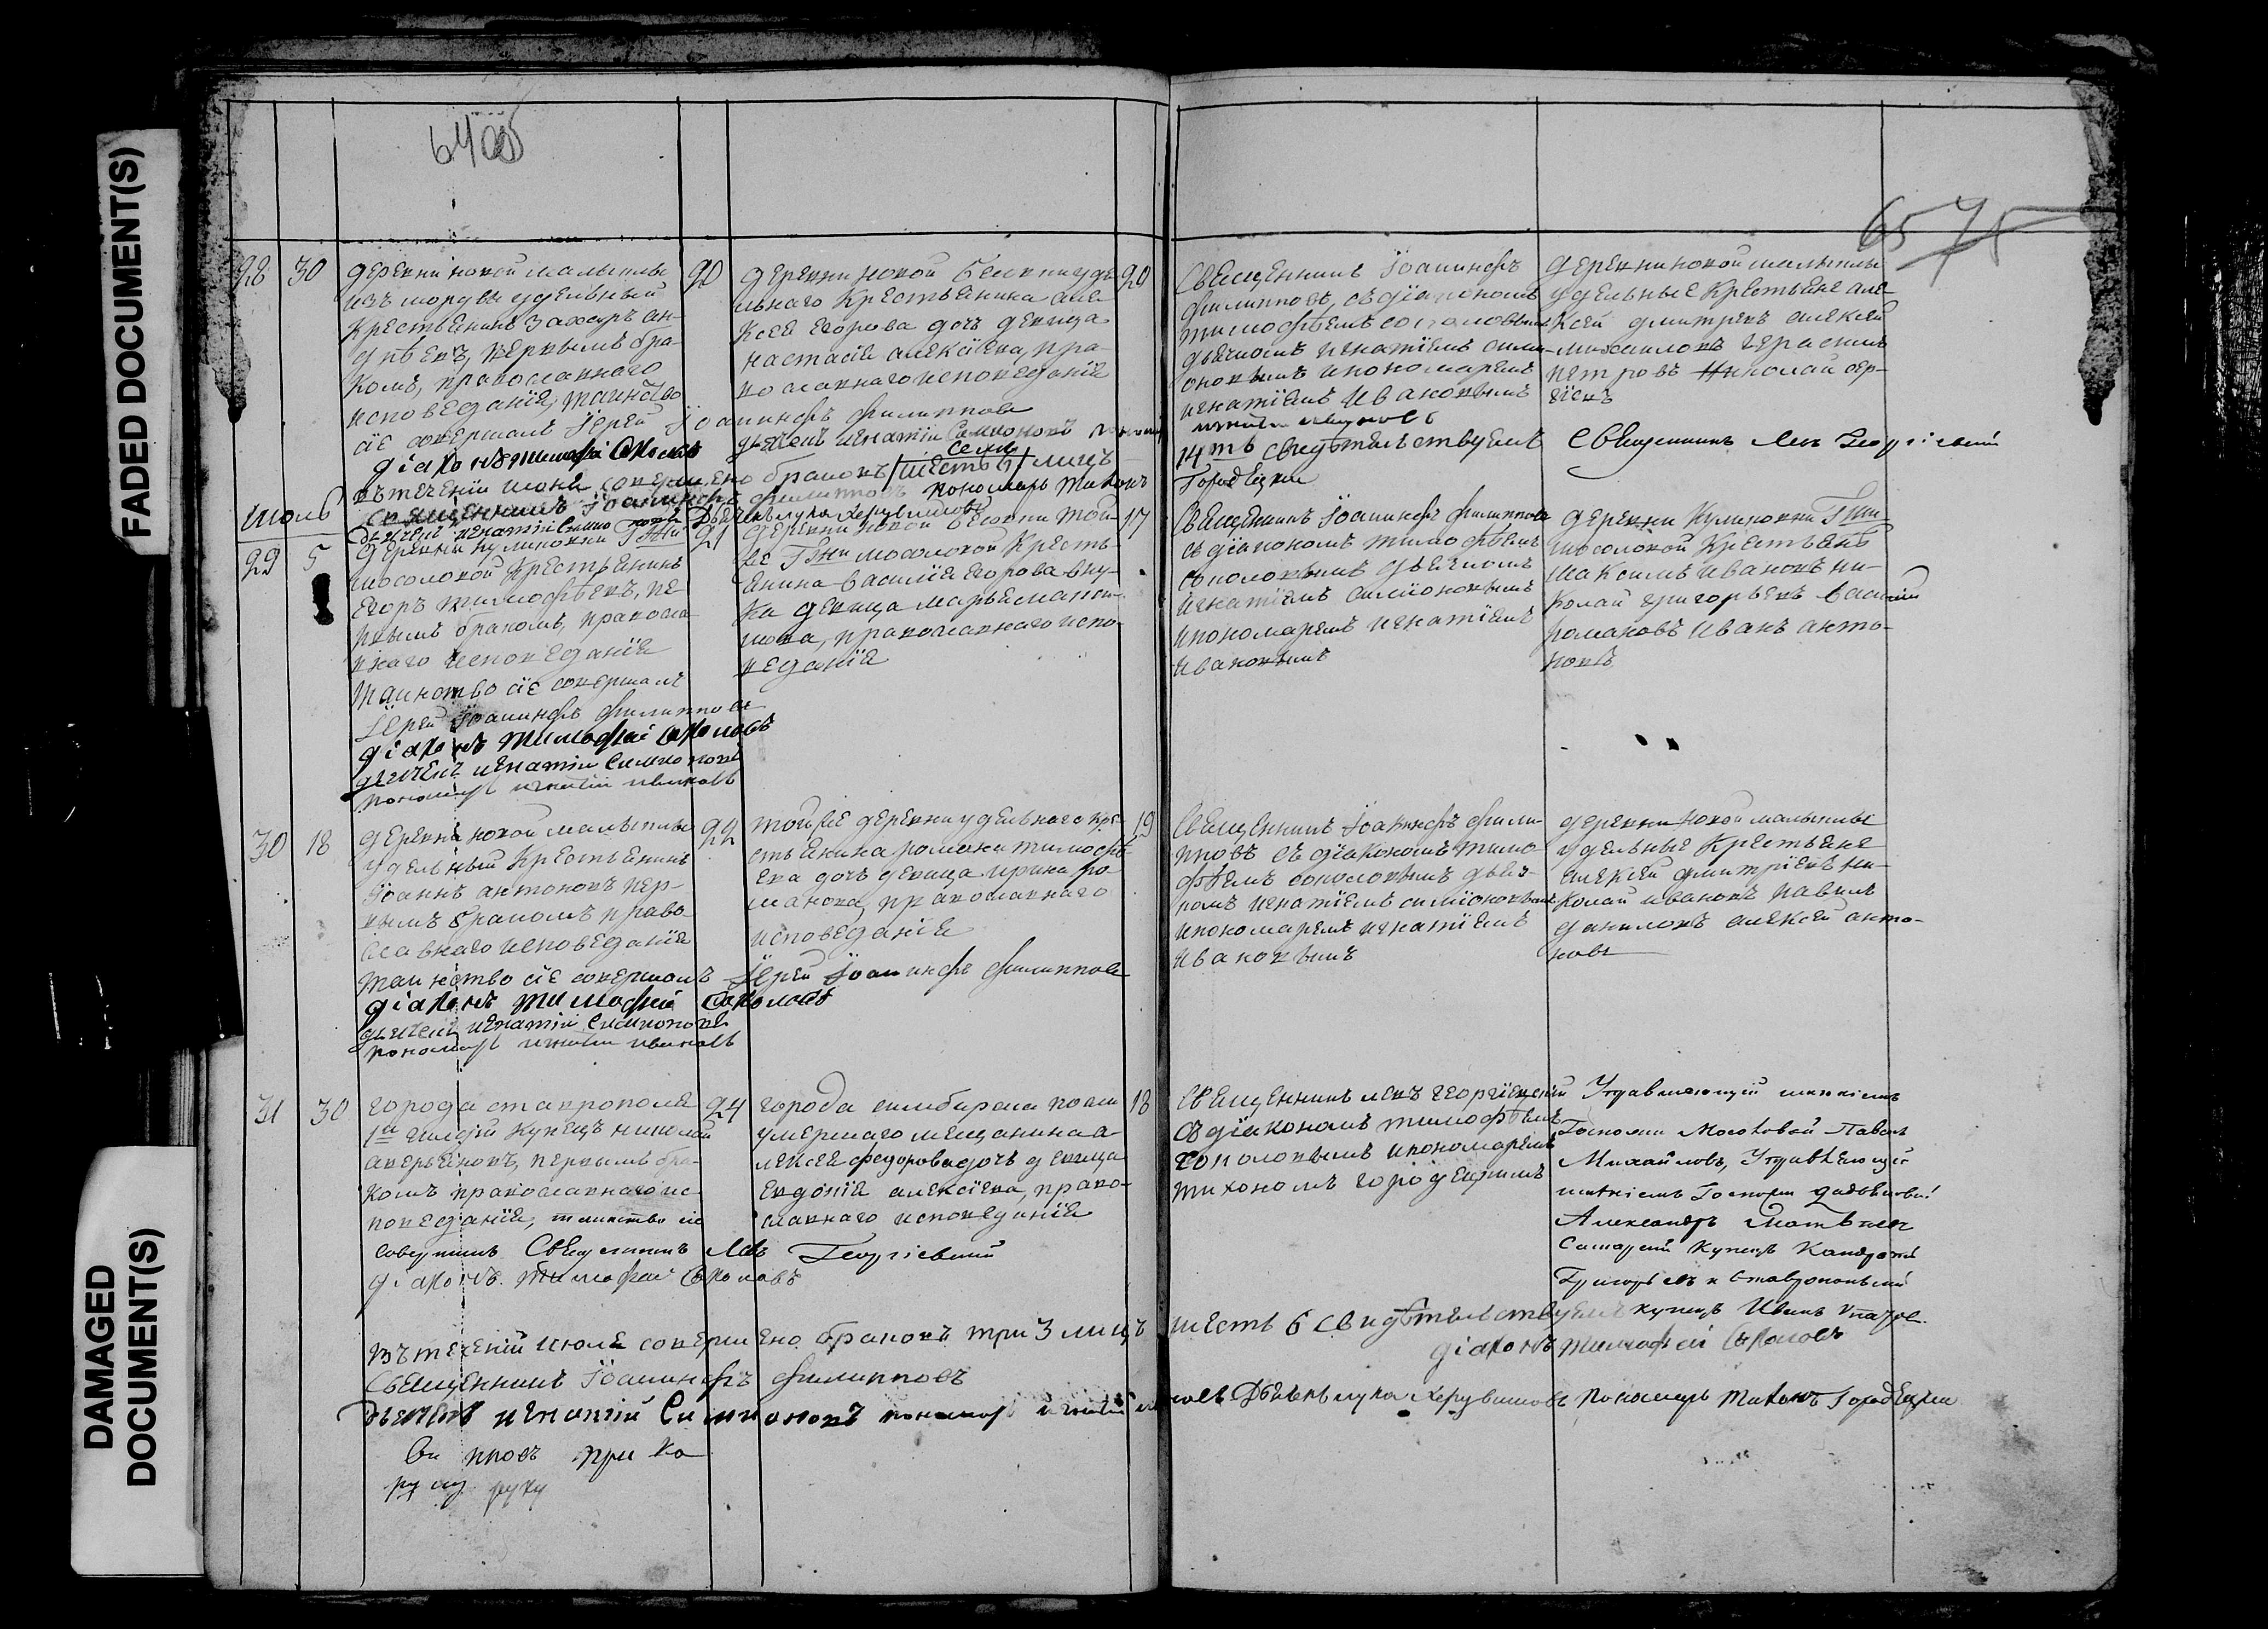 FADED DOCUMENT(S)
DAMAGED
DOCUMENT(S)
65
28 30
деревни новой малыклы
изъ мордвы удельный
крестьянинъ Захаръ ан-
дрѣевъ, первымъ бра-
комъ, православнаго
исповеданія, таинство
сіе совершалъ Іерей Іоакинфъ филипповъ
діаконъ тимофей Соколовъ
дьячекъ игнатій Симионовъ
20
деревни новой бесовки уде
льнаго крестьянина але
ксея Егорова дочь девица
настасія алексіева, пра-
вославнаго исповеданія
20
Священникъ Іоакинфъ
филипповъ, съ діакономъ
тимофѣемъ соколовымъ
дьячкомъ игнатіемъ сими-
оновымъ и пономаремъ
игнатіемъ Ивановымъ
деревни новой малыклы
удельные крестьяне але-
ксей дмитревъ алексей
михаиловъ герасимъ
петровъ николай сер-
гіевъ
въ теченіи июня совершено браковъ шесть 6 лицъ
14ть свидѣтельствуемъ Священникъ Левъ Георгіевскій
священникъ Іоакинфъ филипповъ пономарь Тихонъ
Городецкій
дьячекъ игнатій Симионовъ Дьячекъ лука херувимовъ
июль
29 5
деревни куликовки Гжи
мосоловой крестьянинъ
Егоръ тимофѣевъ, пе
рвымъ бракомъ, правосла
внаго исповеданія
таинство сіе совершалъ
Іерей Іоакинфъ филипповъ
діаконъ тимофей Соколовъ
дьячекъ игнатій Симионовъ
пономарь игнатій ивановъ
21
деревни новой бесовки той-
же Гжи мосоловой кресть-
янина василія Егорова вну-
ка девица марья
православнаго испо-
веданія
17
Священникъ Іоакинфъ филипповъ
съ діакономъ тимофѣемъ
соколовымъ дьячкомъ
игнатіемъ симіоновымъ
и пономаремъ игнатіемъ
ивановымъ
деревни Куликовки Гжи
мосоловой Крестьяне
максимъ ивановъ ни-
колай григорьевъ василій
романовъ иванъ анто-
новъ
30 18
деревни новой малыклы
удельный крестьянинъ
Іоаннъ антоновъ пер-
вымъ бракомъ право
славнаго исповеданія
таинство сіе совершалъ Іерей Іоакинфъ филипповъ
діаконъ тимофей Соколовъ
дьячекъ игнатій Симионовъ
пономарь игнатій ивановъ
22
той же деревни удельнаго кре-
стьянина романа тимофѣ
ева дочь девица ирина ро-
манова, православнаго
исповеданія
19
Священникъ Іоакинфъ фили-
пповъ съ діакономъ тимо-
фѣемъ соколовымъ дьяч-
комъ игнатіемъ симіоновымъ
и пономаремъ игнатіемъ
ивановымъ
деревни новой малыклы
удельные крестьяне
алексей дмитріевъ ни-
колай ивановъ павелъ
даниловъ алексей анто-
новъ
31 30
города ставрополя
1й гильдіи купецъ николай
аверьяновъ, первымъ бра-
комъ православнаго ис-
поведанія, таинство сіе
совершилъ Священникъ Левъ Георгіевскій
діаконъ Тимофей Соколовъ
24
города симбирска
умершаго мещанина а-
лексея федорова дочь девица
евдокія алексіева, право-
славнаго исповеданія
18
Священникъ левъ георгіевскій
съ діакономъ тимофѣемъ
соколовымъ и пономаремъ
тихономъ городецкимъ
Управляющій имѣніемъ
Госпожи Мосоловой Павелъ
Михайловъ, Управляющій
имѣніемъ Госпожи
Александръ Матвѣевъ
Самарскій купецъ
Григорьевъ и Ставропольскій
купецъ Иванъ
въ теченіи июля совершено браковъ три 3 лицъ шесть 6 свидѣтельствуемъ
діаконъ Тимофей Соколовъ
Священникъ Іоакинфъ филипповъ
Дьячекъ игнатій Симионовъ пономарь игнатій ивановъ Дьячекъ лука Херувимовъ Пономарь Тихонъ Городецкій
руку